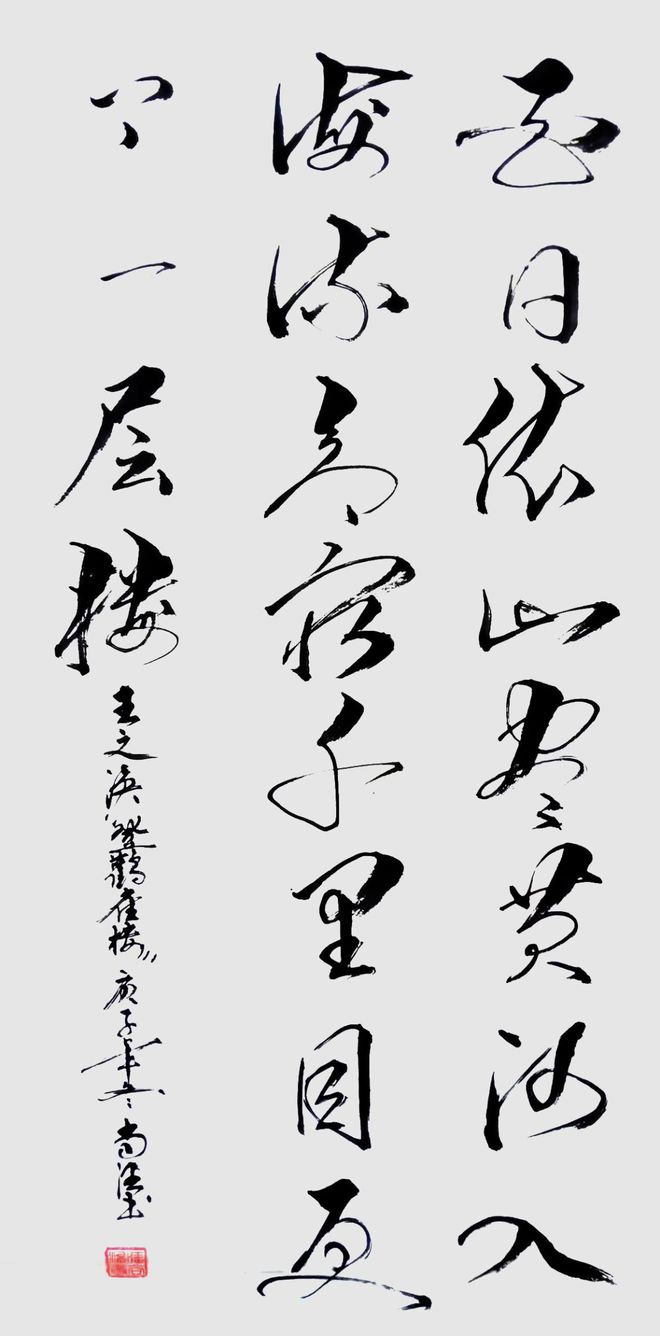 白日依山尽黄河入
海流欲穷千里目更
上一层楼
王之涣"登鹳雀楼"庚子年冬尚